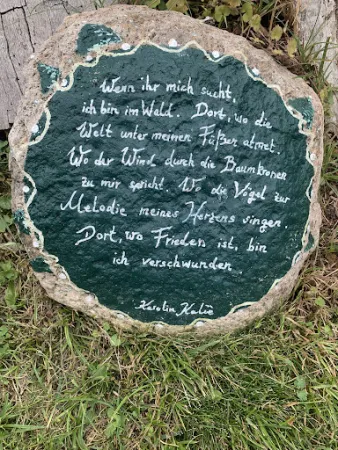 Wenn ihr mich sucht,
ich bin im Wald. Dort, wo die
Welt unter meinen Füßen atmet.
Wo der Wind durch die Baumkronen
zu mir spricht. Wo die Vögel zur
Melodie meines Herzens singen.
Dort, wo Frieden ist, bin
ich verschwunden.
Karolin